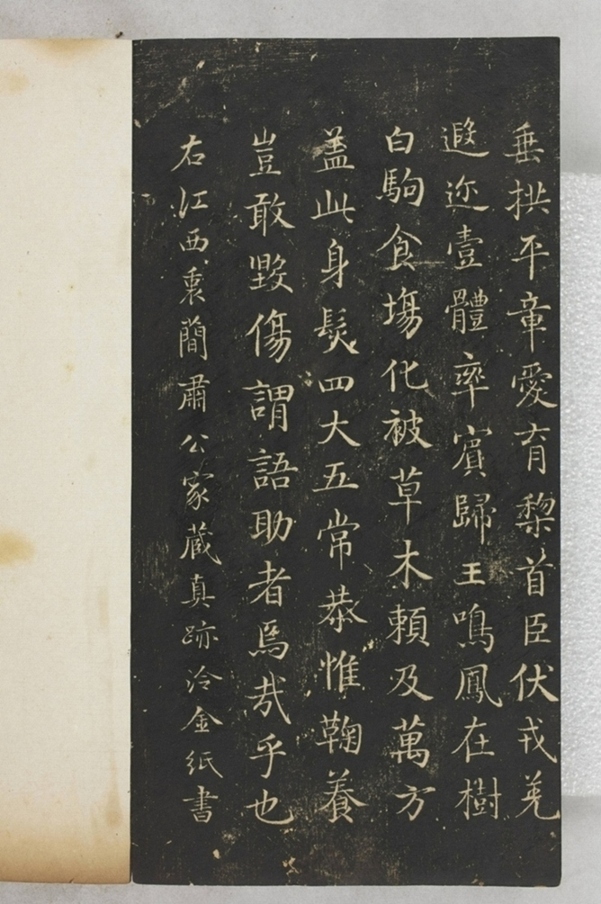 垂拱平章愛育黎首臣伏戎羌
遐迩壹體率賓歸王鳴鳳在樹
白駒食塲化被草木賴及萬方
盖此身髮四大五常恭惟鞠養
豈敢毀傷謂語助者焉哉乎也
右江西裏蕳肅公家蔵真跡冷金紙書